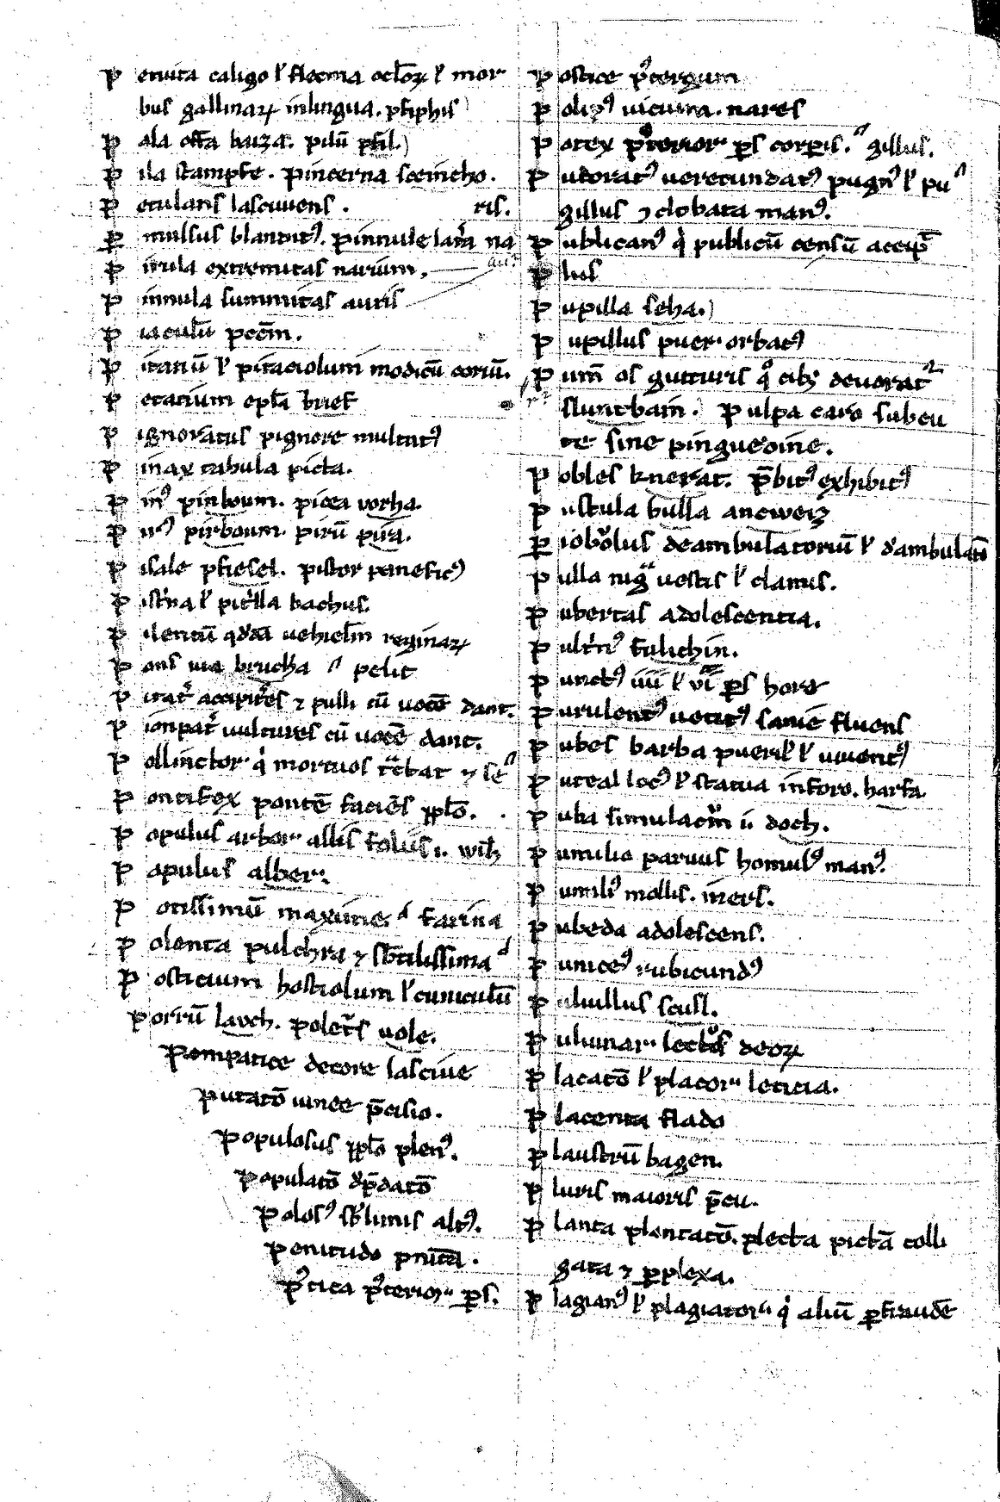 P etuita caligo ł flecma oclōꝝ ł mor
bus gallinaꝝ inlingua. pfiphis
P ala offa baiza. pilū pfil.
P ila stampfe. pincerna sceincho.
P etulans lasciuiens. ris.
P mulsus blanditꝰ. pinnule na
P irula extremitas narium.
P innula summitas auris
P iaculū pcēm.
P itaciū ł pitaciolum modicū coriū.
P etacium epła brief
P ignoratus pignore multatꝰ
P inax tabula picta.
P inꝰ pinboum. picea vorha.
P irꝰ pirboum. pirū pira.
P isale pfiesel. pistor panificꝰ
P istͥna ł pistͥlla bachus.
P ilentū qddā uehiclm reginaꝝ
P ons uia brucha pelit
P itatᷣ accipitͤs ⁊ pulli cū uocē dant.
P ionpatᷣ uultures cū uocē dant.
P ollinctor qͥ mortuos tͣctat ⁊ seᷓ
P ontifex pontē faciēs pplo.
P opulus arbor allis foliis i. wilz
P apulus alber.
P otissimū maxime. farina
P olenta pulchra ⁊ sbtilissima
P osticium hostiolum ł cuniculū
P orrū lavch. poletͥs uole.
Pompatice decore lasciue
Putatō uinee p̄cisio.
Populosus pplo plenꝰ.
Populatō dp̄datō
Polosꝰ sblimis altꝰ.
Penitudo pnitā.
Pꝰtica pꝰterior ꝑs.
P ostice pꝰtergum
P olipꝰ uicium. nares
P otex pꝰterior ꝑs corꝑis. gillus.
P udoratꝰ uerecundatꝰ pugnꝰ ł pu
gillus ⁊ clobata manꝰ.
P ublicanꝰ qͥ publicū censū accip̄
P lus
P upilla seha.
P upillus puer orbatꝰ
P um̄ os gutturis qͦ cibꝫ deuoratᷣ
sluntbain. Pulpa caro sub cu
te sine pinguedine.
P obles knerat. p̄bitꝰ exhibitꝰ
P ustula bulla anoweiz
ꝑ iobolus deambulatoriū ł dambulatō
P ulla nigͣ uestis ł clamis.
P ubertas adolescentia.
P ultͥnꝰ fulichin.
P unctꝰ iiii ł vi ꝑs hore
P urulentꝰ uetitꝰ sanie fluens
P ubes barba pueril ł iuuentꝰ
P uteal locꝰ ł statua in foro. harfa
P uba simulacrm i doch.
P umilio paruus homulꝰ manꝰ.
P umilꝰ mollis. iners.
P ubeda adolescens.
P uniceꝰ rubicundꝰ
P uluillus scull.
P uluinar lectꝰ deoꝝ
P lacatō ł placor leticia.
P lacenta flado
P laustrū bagen.
P luris maioris p̄cii.
P lanta plantatō. plecta pictā colli
gata ⁊ ꝑplexa.
P lagianꝰ ł plagiator qͥ aliū ꝑ fraudē